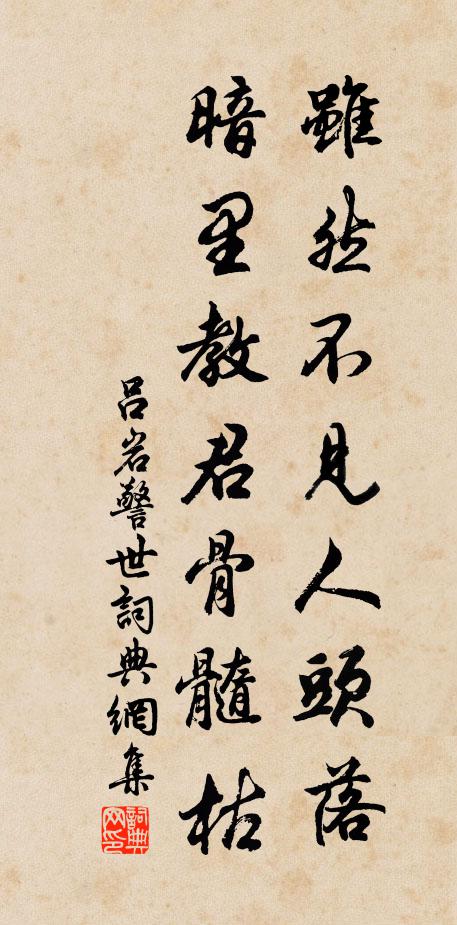 雖然不見人頭落
暗里教君骨髓枯
呂岩警世詞典網集
詞典网印